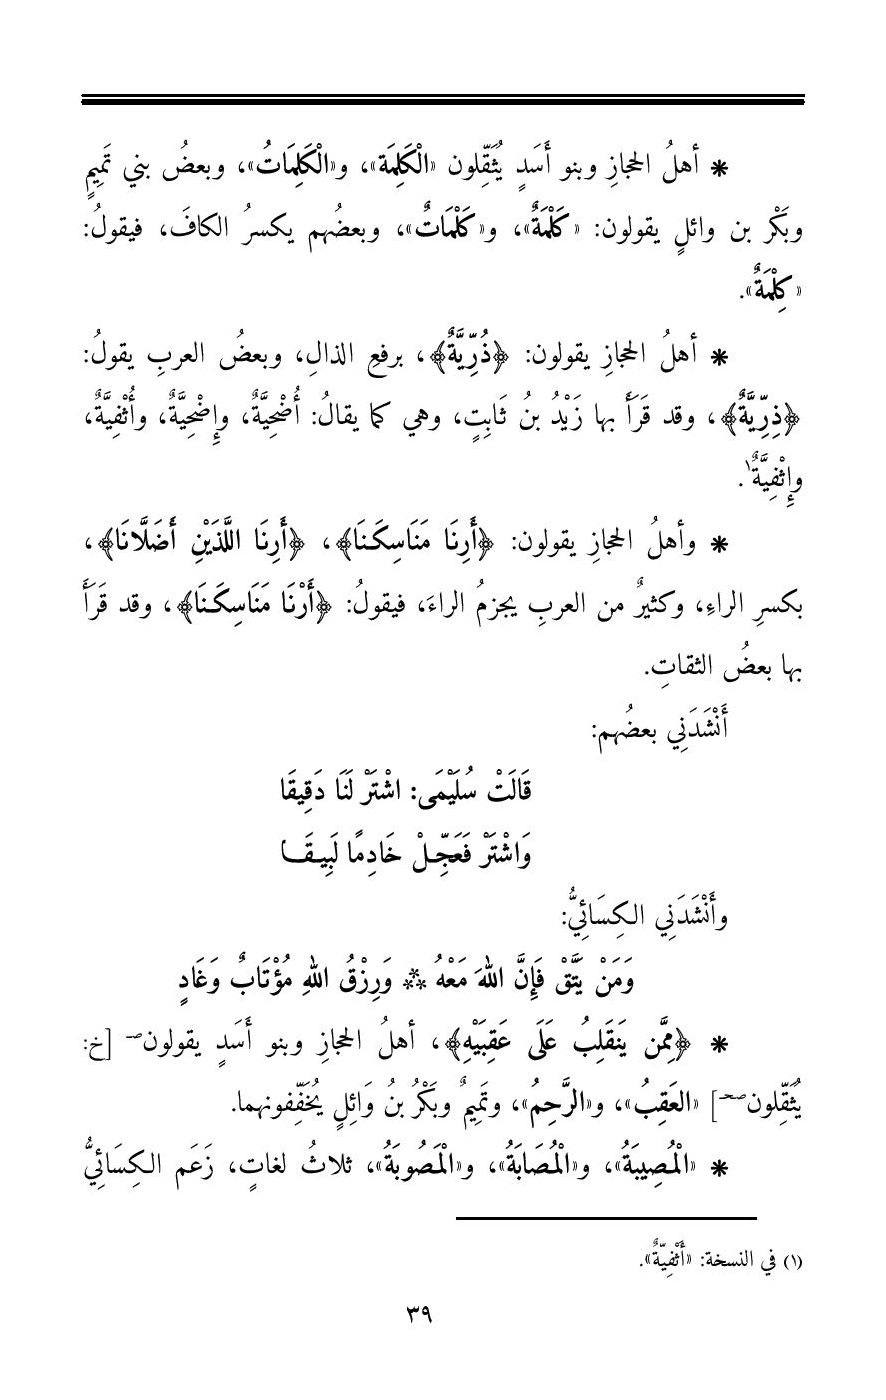 * أهلُ الحجازِ وبنو أَسَدٍ يُثَقِّلون «الْكَلِمَة»، و«الْكَلِمَاتُ»، وبعضُ بني تَمِيمٍ
وبَكْر بن وائلٍ يقولون: «كَلْمَةٌ»، و«كَلْمَاتٌ»، وبعضُهم يكسرُ الكافَ، فيقولُ:
«كِلْمَةٌ».
* أهلُ الحجازِ يقولون: ﴿ذُرِّيَّةٌ﴾، برفعِ الذالِ، وبعضُ العربِ يقولُ:
﴿ذِرِّيَّةٌ﴾، وقد قَرَأَ بها زَيْدُ بنُ ثَابِتٍ، وهي كما يقالُ: أُضْحِيَّةٌ، وإِضْحِيَّةٌ، وأُثْفِيَّةٌ،
وإِثْفِيَّةٌ١.
* وأهلُ الحجازِ يقولون: ﴿أَرِنَا مَنَاسِكَنَا﴾، ﴿أَرِنَا اللَّذَيْنِ أَضَلَّانَا﴾،
بكسرِ الراءِ، وكثيرٌ من العربِ يجزمُ الراءَ، فيقولُ: ﴿أَرْنَا مَنَاسِكَنَا﴾، وقد قَرَأَ
بها بعضُ الثقاتِ.
أَنْشَدَنِي بعضُهم:
قَالَتْ سُلَيْمَى: اشْتَرْ لَنَا دَقِيقَا
وَاشْتَرْ فَعَجِّلْ خَادِمًا لَبِيقَا
وأَنْشَدَنِي الكِسَائِيُّ:
وَمَنْ يَتَّقْ فَإِنَّ اللهَ مَعْهُ ** وَرِزْقُ اللهِ مُؤْتَابٌ وَغَادِ
* ﴿مِمَّن يَنقَلِبُ عَلَى عَقِبَيْهِ﴾، أهلُ الحجازِ وبنو أَسَدٍ يقولون صـ [خ:
يُثَقِّلون صحـ] «العَقِبُ»، و«الرَّحِمُ»، وتَمِيمٌ وبَكْرُ بنُ وَائِلٍ يُخَفِّفونهما.
* «الْمُصِيبَةُ»، و«الْمُصَابَةُ»، و«الْمَصُوبَةُ»، ثلاثُ لغاتٍ، زَعَم الكِسَائِيُّ
(١) في النسخة: «أَثْفِيَّةٌ».
٣٩